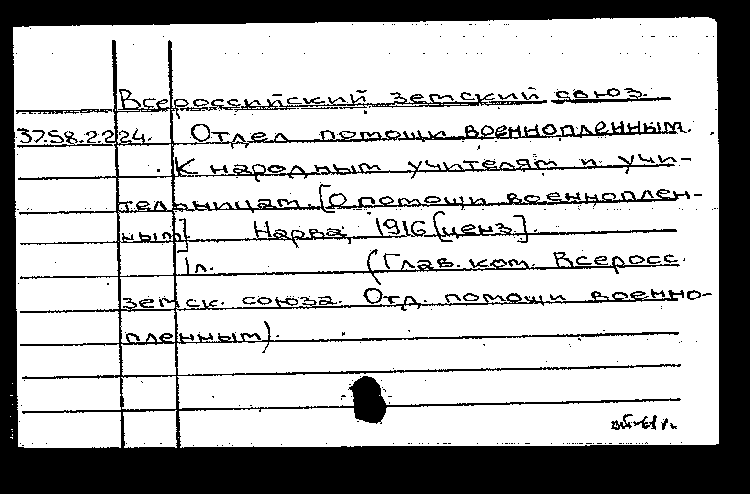 Всероссийский земский союз.
37.58.2.224. Отдел помощи военнопленным.
К народным учителям и учи-
тельницам. [О помощи военноплен-
ным] Нарва, 1916 [ценз].
1л. (Глав. ком. Всеросс.
земск. союза. Отд. помощи военно-
пленным).